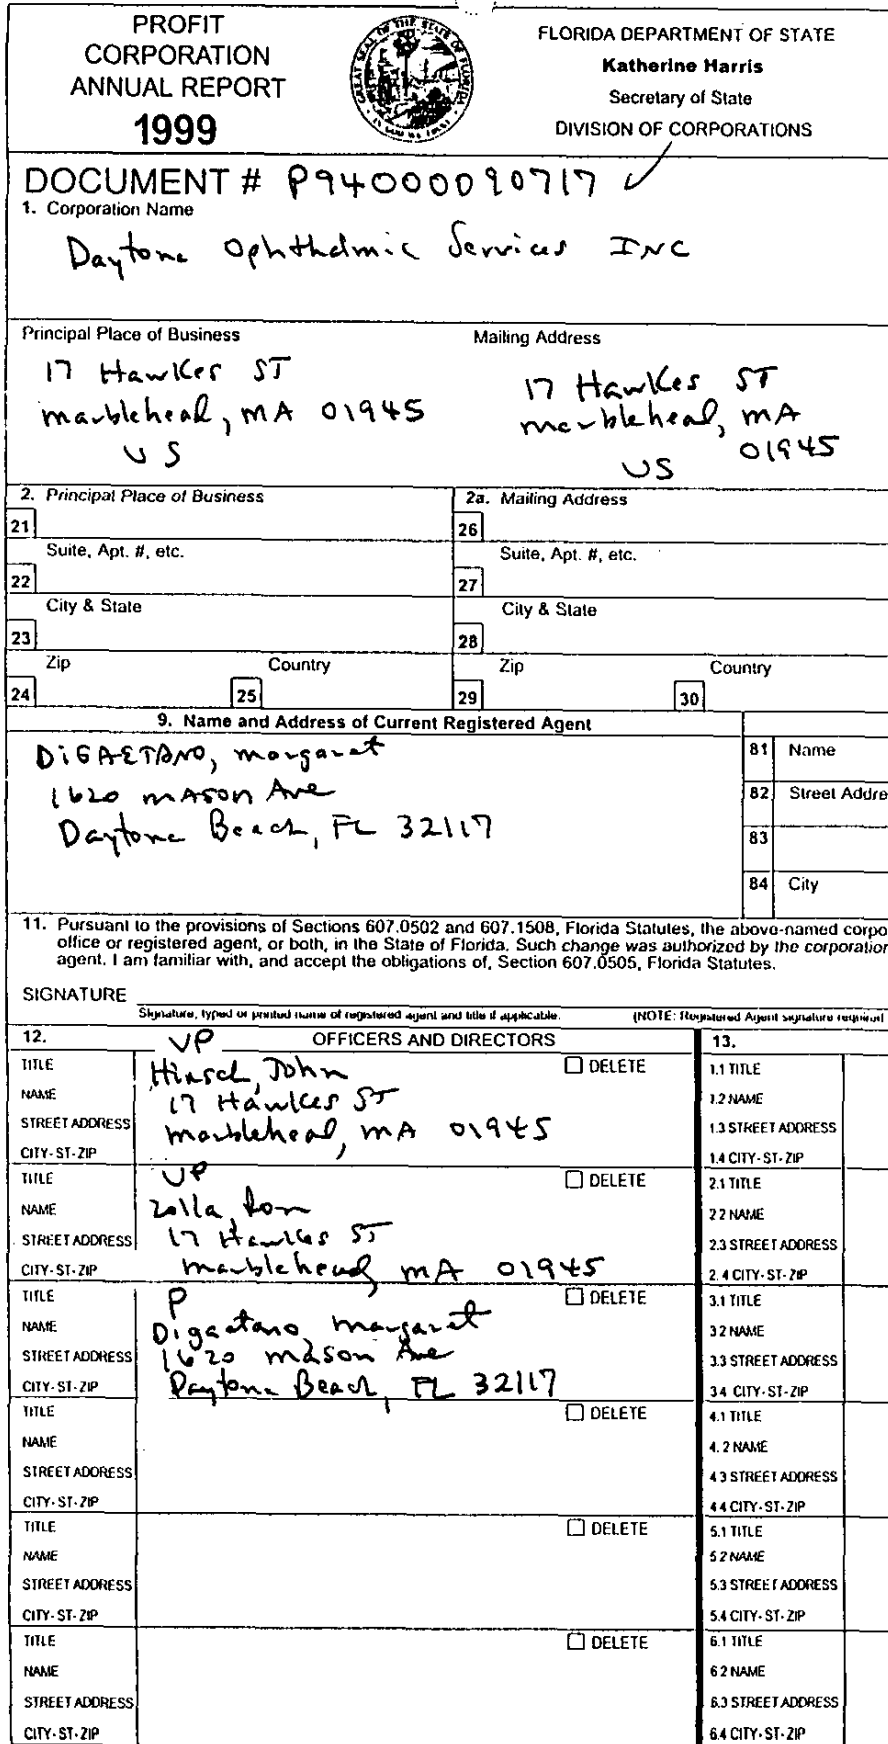 PROFIT
CORPORATION
ANNUAL REPORT
1999
GREAT SEAL OF THE STATE OF FLORIDA
IN GOD WE TRUST
FLORIDA DEPARTMENT OF STATE
Katherine Harris
Secretary of State
DIVISION OF CORPORATIONS
DOCUMENT # P94000090717 ✓
1. Corporation Name
Daytona Ophthalmic Services INC
Principal Place of Business
17 Hawkes ST
marblehead, MA 01945
US
Mailing Address
17 Hawkes ST
marblehead, MA
01945
US
2. Principal Place of Business
21
Suite, Apt. #, etc.
22
City & State
23
Zip Country
24 25
2a. Mailing Address
26
Suite, Apt. #, etc.
27
City & State
28
Zip Country
29 30
9. Name and Address of Current Registered Agent
DiGAETANO, margaret
1620 mason Ave
Daytona Beach, FL 32117
81 Name
82 Street Addre
83
84 City
11. Pursuant to the provisions of Sections 607.0502 and 607.1508, Florida Statutes, the above-named corpo
office or registered agent, or both, in the State of Florida. Such change was authorized by the corporation
agent. I am familiar with, and accept the obligations of, Section 607.0505, Florida Statutes.
SIGNATURE
Signature, typed or printed name of registered agent and title if applicable. (NOTE: Registered Agent signature required
12. OFFICERS AND DIRECTORS
13.
TITLE VP DELETE
NAME Hirsch, John
STREET ADDRESS 17 Hawkes ST
CITY-ST-ZIP marblehead, MA 01945
1.1 TITLE
1.2 NAME
1.3 STREET ADDRESS
1.4 CITY-ST-ZIP
TITLE VP DELETE
NAME Zolla, Ron
STREET ADDRESS 17 Hawkes ST
CITY-ST-ZIP marblehead, MA 01945
2.1 TITLE
2.2 NAME
2.3 STREET ADDRESS
2.4 CITY-ST-ZIP
TITLE P DELETE
NAME Digaetano, margaret
STREET ADDRESS 1620 mason Ave
CITY-ST-ZIP Daytona Beach, FL 32117
3.1 TITLE
3.2 NAME
3.3 STREET ADDRESS
3.4 CITY-ST-ZIP
TITLE DELETE
NAME
STREET ADDRESS
CITY-ST-ZIP
4.1 TITLE
4.2 NAME
4.3 STREET ADDRESS
4.4 CITY-ST-ZIP
TITLE DELETE
NAME
STREET ADDRESS
CITY-ST-ZIP
5.1 TITLE
5.2 NAME
5.3 STREET ADDRESS
5.4 CITY-ST-ZIP
TITLE DELETE
NAME
STREET ADDRESS
CITY-ST-ZIP
6.1 TITLE
6.2 NAME
6.3 STREET ADDRESS
6.4 CITY-ST-ZIP